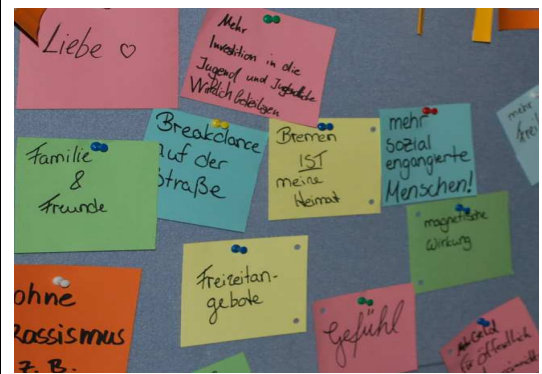 Liebe ♡
Mehr
Investition in die
Jugend und Jugendliche
Wirklich beteiligen
Familie
&
Freunde
Breakdance
auf der
Straße
Bremen
IST
meine
Heimat
mehr
sozial
engangierte
Menschen!
mehr
magnetische
Wirkung
Freizeitan-
gebote
Gefühl
ohne
Rassismus
z. B.
Geld
für öffentlich